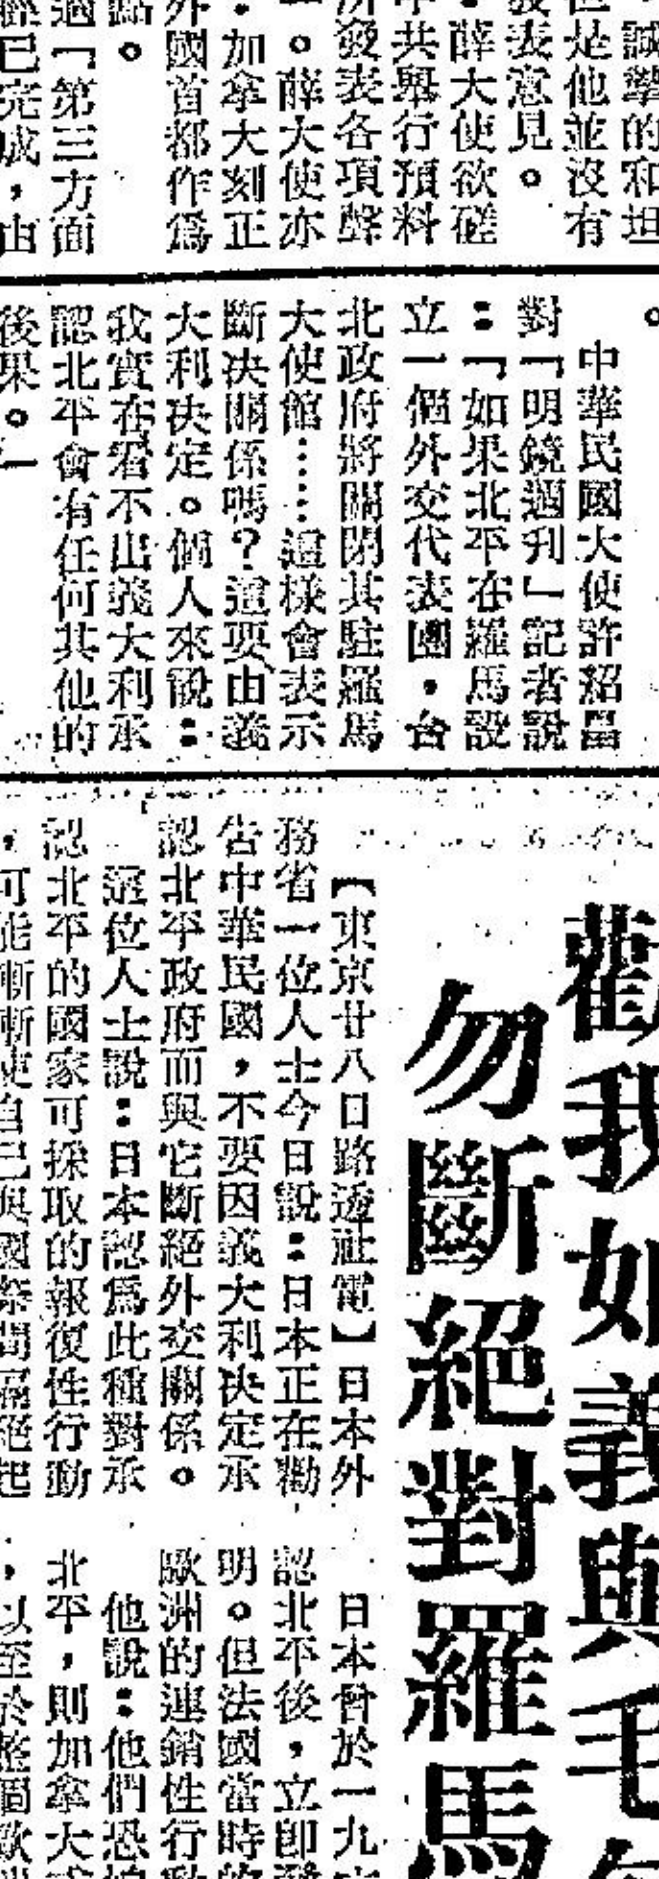 誠摯的和坦
但是他並沒有
發表意見。
薛大使欲磋
中共舉行預料
所發表各項聲
。薛大使亦
加拿大刻正
外國首都作爲
點。
過「第三方面
經已完成，由
。
中華民國大使許紹昌
對「明鏡週刊」記者說
：「如果北平在羅馬設
立一個外交代表團，台
北政府將關閉其駐羅馬
大使館……這樣會表示
斷決關係嗎？這要由義
大利決定。個人來說：
我實在看不出義大利承
認北平會有任何其他的
後果。」
勸我如義與毛
勿斷絕對羅馬
【東京廿八日路透社電】日本外
務省一位人士今日說：日本正在勸
告中華民國，不要因義大利決定承
認北平政府而與它斷絕外交關係。
這位人士說：日本認爲此種對承
認北平的國家可採取的報復性行動
，可能漸漸使自己與國際間隔絕起
日本曾於一九
認北平後，立即
明。但法國當時
歐洲的連銷性行動
他說：他們恐怕
北平，則加拿大
，以至於整個歐洲